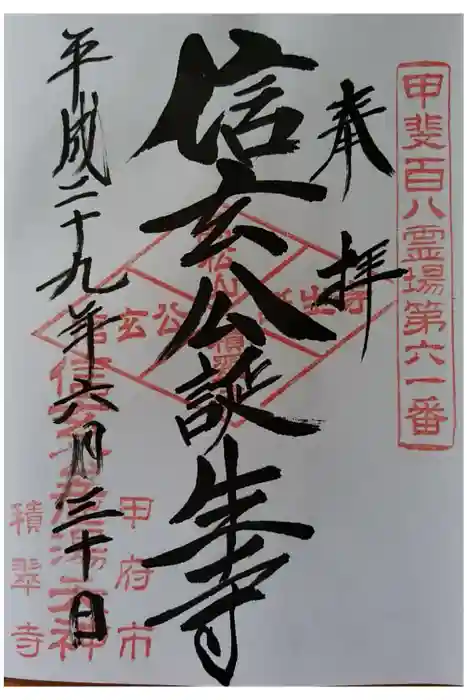 甲斐百八霊場第六一番
奉拝
信玄公誕生寺
平成二十九年六月三十日
甲府市
積翠寺